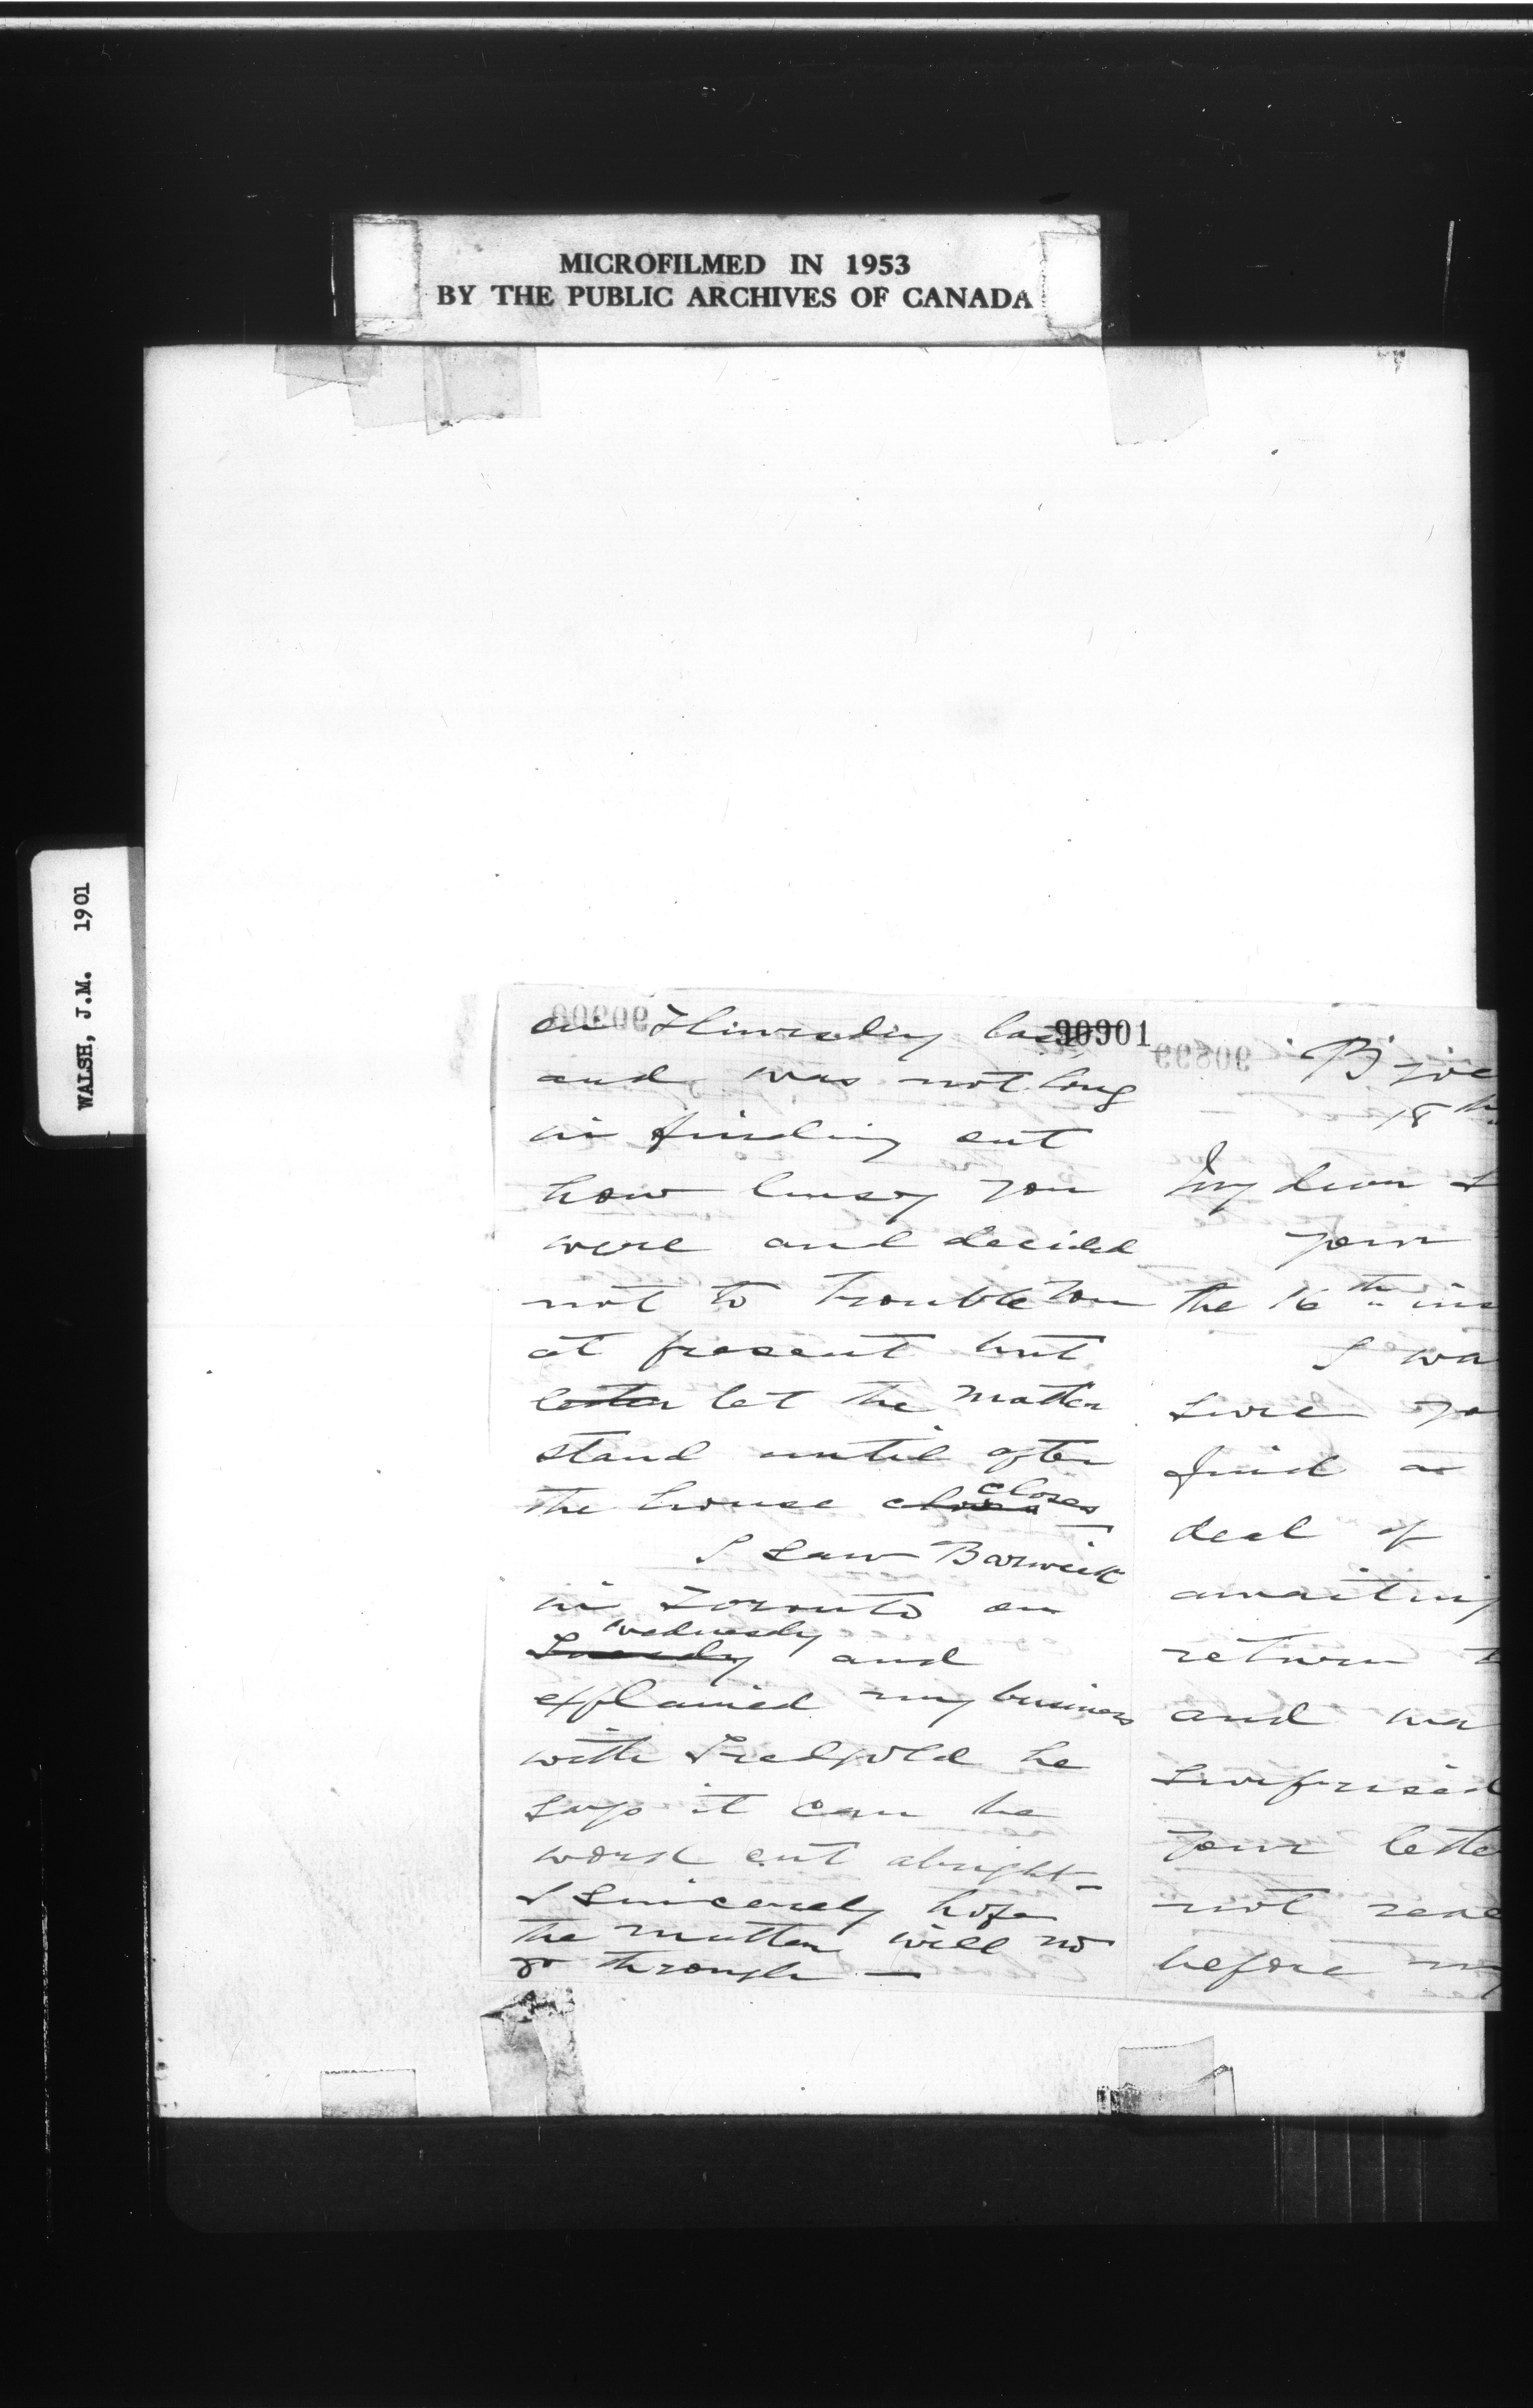 MICROFILMED IN 1953
BY THE PUBLIC ARCHIVES OF CANADA
WALSH, J.M. 1901
90901
on Thursday last
and was not long
in finding out
how busy you
were and decided
not to trouble you
at present but
let the matter
stand until after
the house closes closes
I saw Barwick
in Toronto on
Wednesdy
Tuesdy and
explained my business
with Tredgold he
says it can be
work out alright –
I sincerely hope
the matter will no
go through —
90899
18th
My dear S
your
the 16th ins
I wa
sure yo
find a
deal of
awaiting
return t
and wa
surprised
your lette
not reac
before my